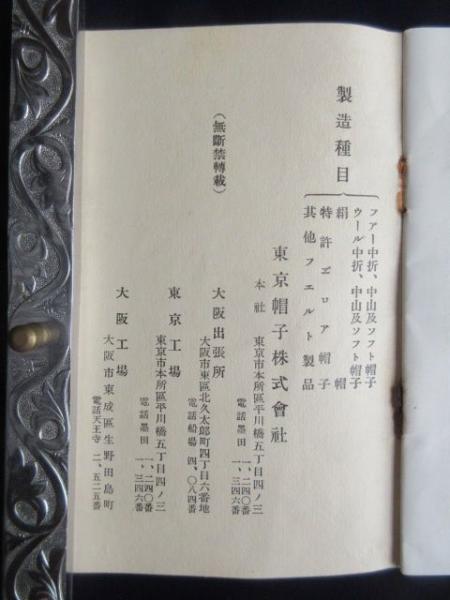 製造種目
ファー中折、中山及ソフト帽子
ウール中折、中山及ソフト帽子
絹帽
特許ヹロア帽子
其他フエルト製品
東京帽子株式會社
本社 東京市本所區平川橋五丁目四ノ三
電話墨田 一、二四〇番
一、三四六番
大阪出張所
大阪市東區北久太郎町四丁目六番地
電話船場 四、〇八四番
東京工場
東京市本所區平川橋五丁目四ノ三
電話墨田 一、二四〇番
一、三四六番
大阪工場
大阪市東成區生野田島町
電話天王寺 二、五二五番
(無斷禁轉載)